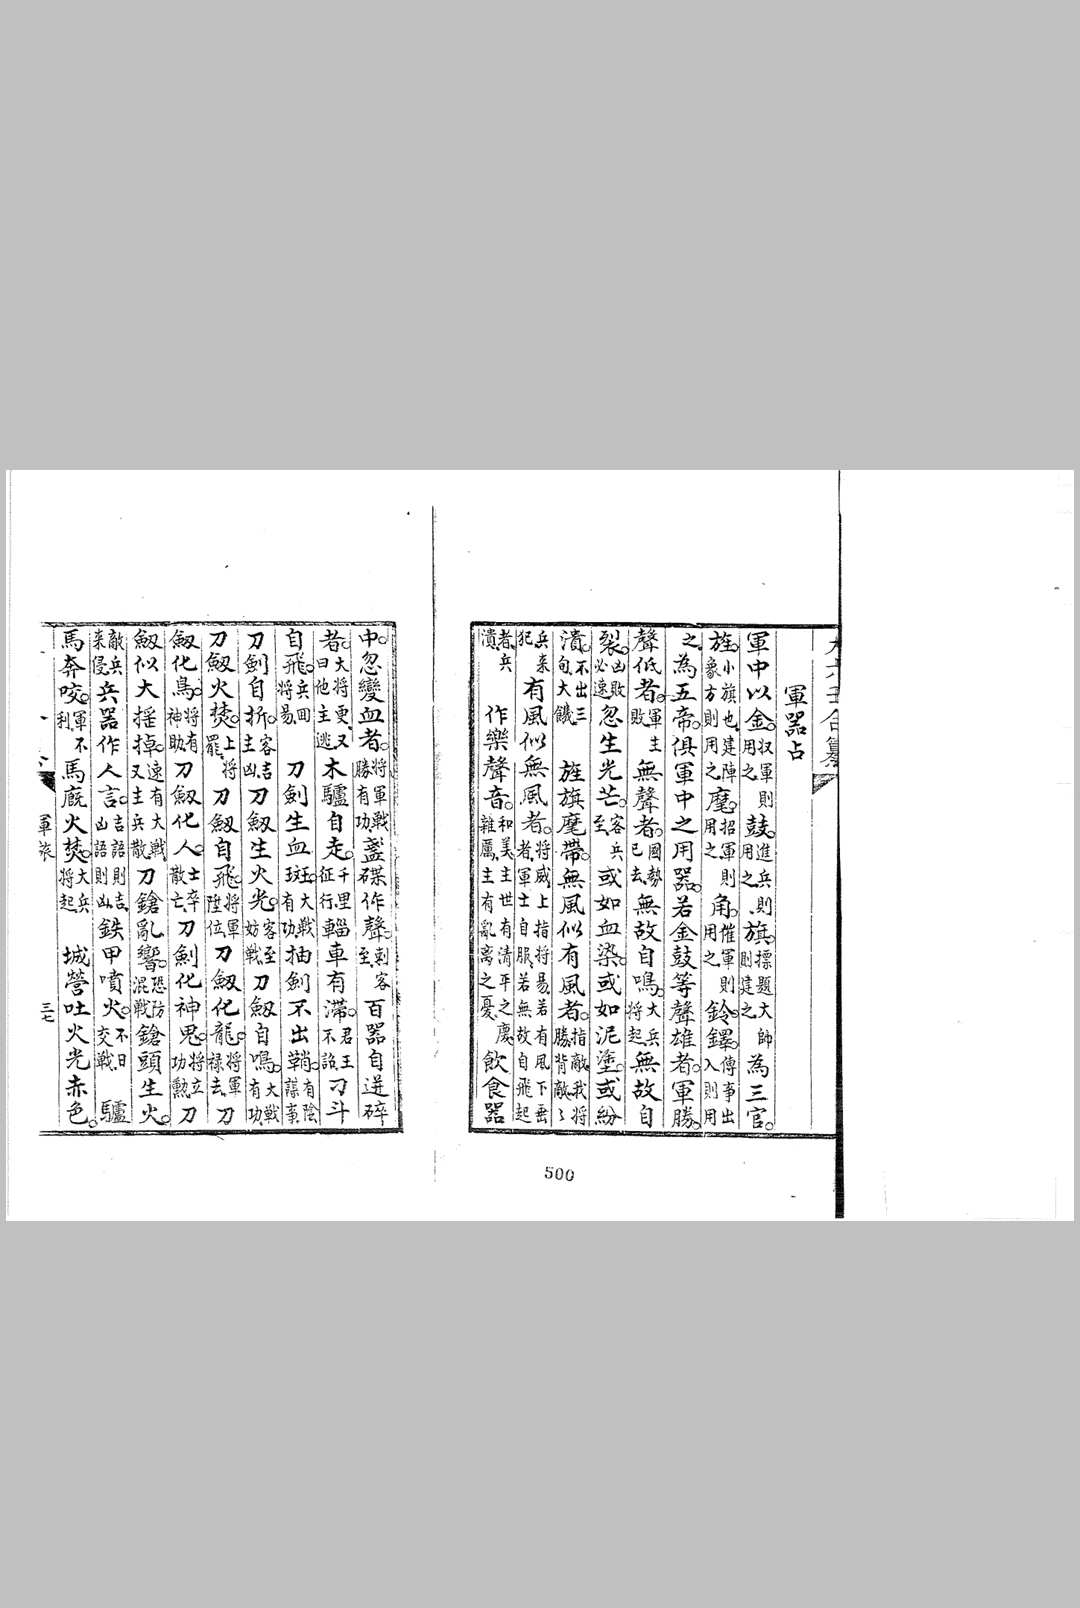 大六壬合纂
軍器占
軍中以金。收軍則用之鼓。進兵則用之、旗。標題大帥則建之為三官。
旌。小旗也。建陣象方則用之麾。招軍則用之角。催軍則用之鈴鐸。傳事出入則用
之為五帝。俱軍中之用器。若金鼓等聲雄者。軍勝。
聲低者。軍主敗無聲者。國勢已去無故自鳴。大兵将起無故自
裂。凶敗必速忽生光芒。客兵至或如血染。或如泥塗。或紛
潰。不出三旬、大饑旌旗麾帶。無風似有風者。指敵、我将勝、背敵、
兵来犯有風似無風者。将威上指将昜、若有風下垂者、軍士自服、若無故自飛起
者、兵潰作樂聲音。和美、主世有清平之慶、雜厲、主有亂离之憂飲食器
500
中。忽變血者。将軍戰勝有功盞碟作聲。刺客至百器自迸碎
者。大将更、又曰他主逃木驢自走。千里征行輜車有滯。君王不詔刁斗
自飛。兵回将昜刀劍生血斑。大戰有功抽劍不出鞘。有陰謀事
刀劍自折。客吉主凶刀劔生火光。客至妨戰刀劔自鳴。大戰有功
刀劔火焚。上将罷刀劔自飛。将軍陞位刀劔化龍。将軍禄去刀
劔化鳥。将有神助刀劔化人。士卒散亡刀劍化神鬼。将立功勲刀
劔似大摇掉。速有大戰又主兵散刀鎗亂響。恐防混戰鎗頭生火。
敵兵来侵兵器作人言。吉語則吉凶語則凶鉄甲噴火。不日交戰驢
馬奔咬。軍不利馬廐火焚。大兵将起城營吐火光赤色。
軍旅
三七